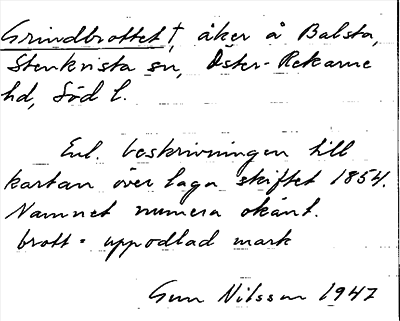 Grindbrottet†, åker å Balsta,
Stenkvista sn, Öster-Rekarne
hd, Söd l.
Enl. beskrivningen till
kartan över laga skiftet 1854.
Namnet numera okänt.
brott = uppodlad mark
Gun Nilsson 1947